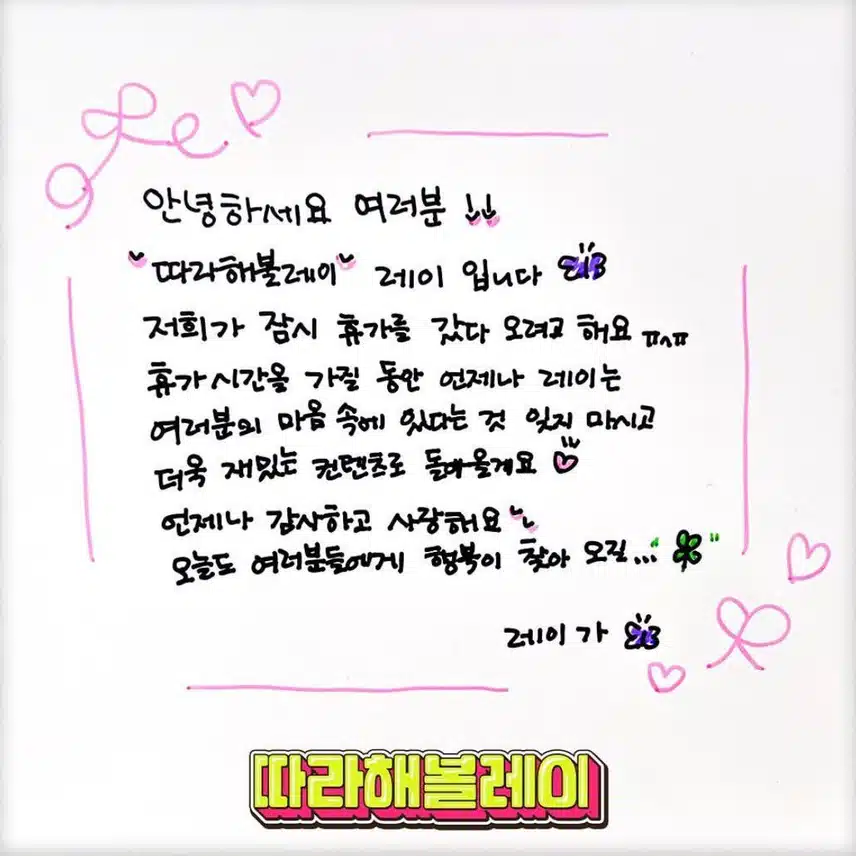 안녕하세요 여러분 !!
"따라해볼레이" 레이 입니다
저희가 잠시 휴가를 갔다 오려고 해요 ㅠ^ㅠ
휴가 시간을 가질 동안 언제나 레이는
여러분의 마음 속에 있다는 것 잊지 마시고
더욱 재밌는 컨텐츠로 돌아올게요
언제나 감사하고 사랑해요
오늘도 여러분들에게 행복이 찾아 오길...
레이가
따라해볼레이